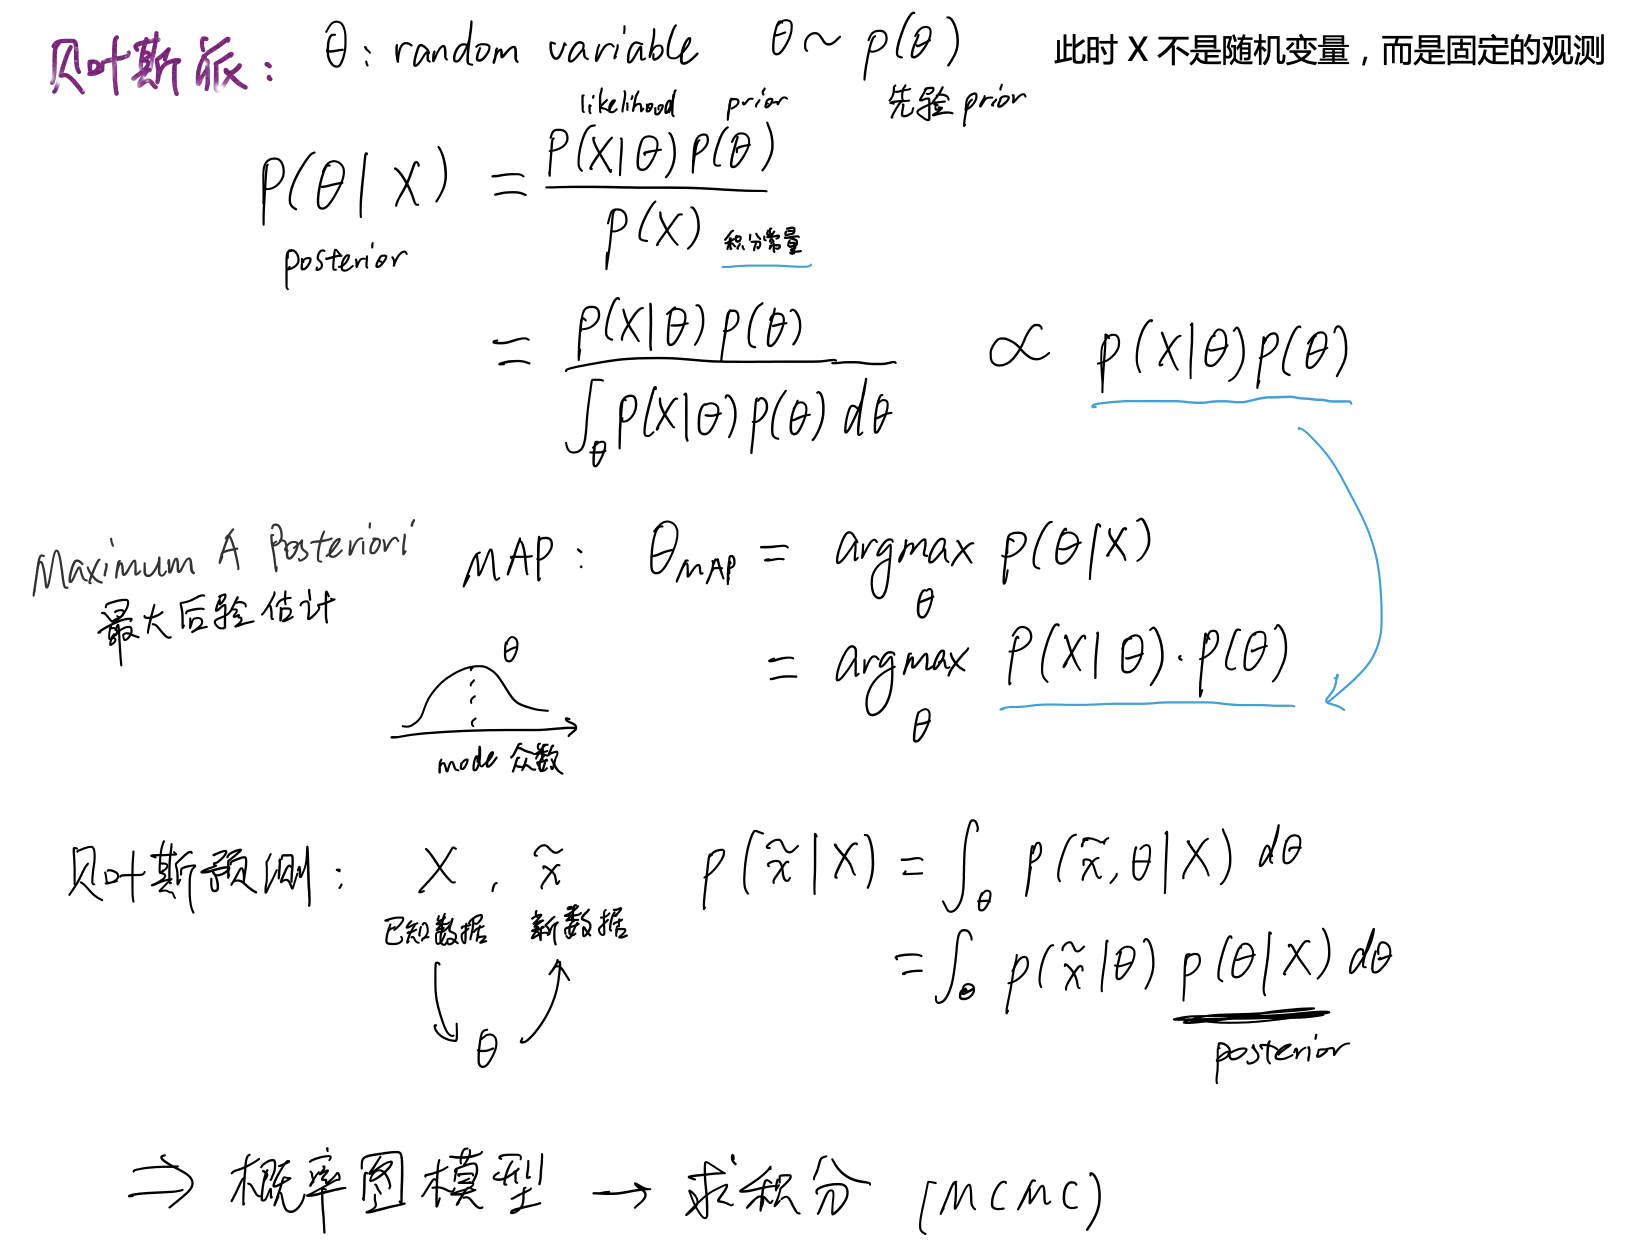 贝叶斯派： θ: random variable θ ~ p(θ) 此时 X 不是随机变量，而是固定的观测
likelihood prior 先验 prior
P(θ|X) = P(X|θ)P(θ) / p(X) 积分常量
posterior
= p(X|θ)p(θ) / ∫_θ p(X|θ)p(θ)dθ ∝ p(X|θ)p(θ)
Maximum A Posteriori MAP: θ_MAP = argmax_θ p(θ|X)
最大后验估计
= argmax_θ P(X|θ)·p(θ)
θ
mode 众数
贝叶斯预测: X, x̃ p(x̃|X) = ∫_θ p(x̃,θ|X) dθ
已知数据 新数据
= ∫_θ p(x̃|θ) p(θ|X) dθ
θ
posterior
⇒ 概率图模型 → 求积分 (MCMC)